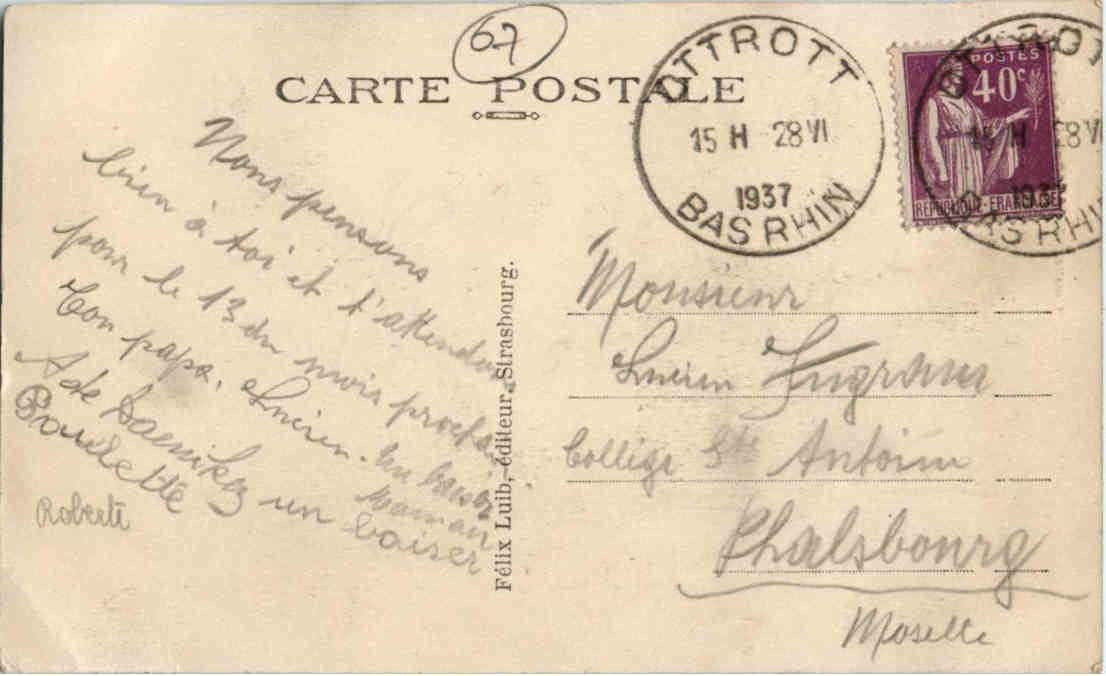 67
CARTE POSTALE
OTTROTT
15 H 28 VI
1937
BAS RHIN
OTTROTT
15 H 28 VI
1937
BAS RHIN
POSTES
40c
REPUBLIQUE-FRANCAISE
Nous pensons
bien à toi et t'attendons
pour le 13 du mois prochain
Ton papa, Lucien. Un baiser
Maman
un baiser
Paulette
Roberte
Félix Luib, éditeur, Strasbourg.
Monsieur
Lucien Ingrann
Collège St Antoine
Phalsbourg
Moselle